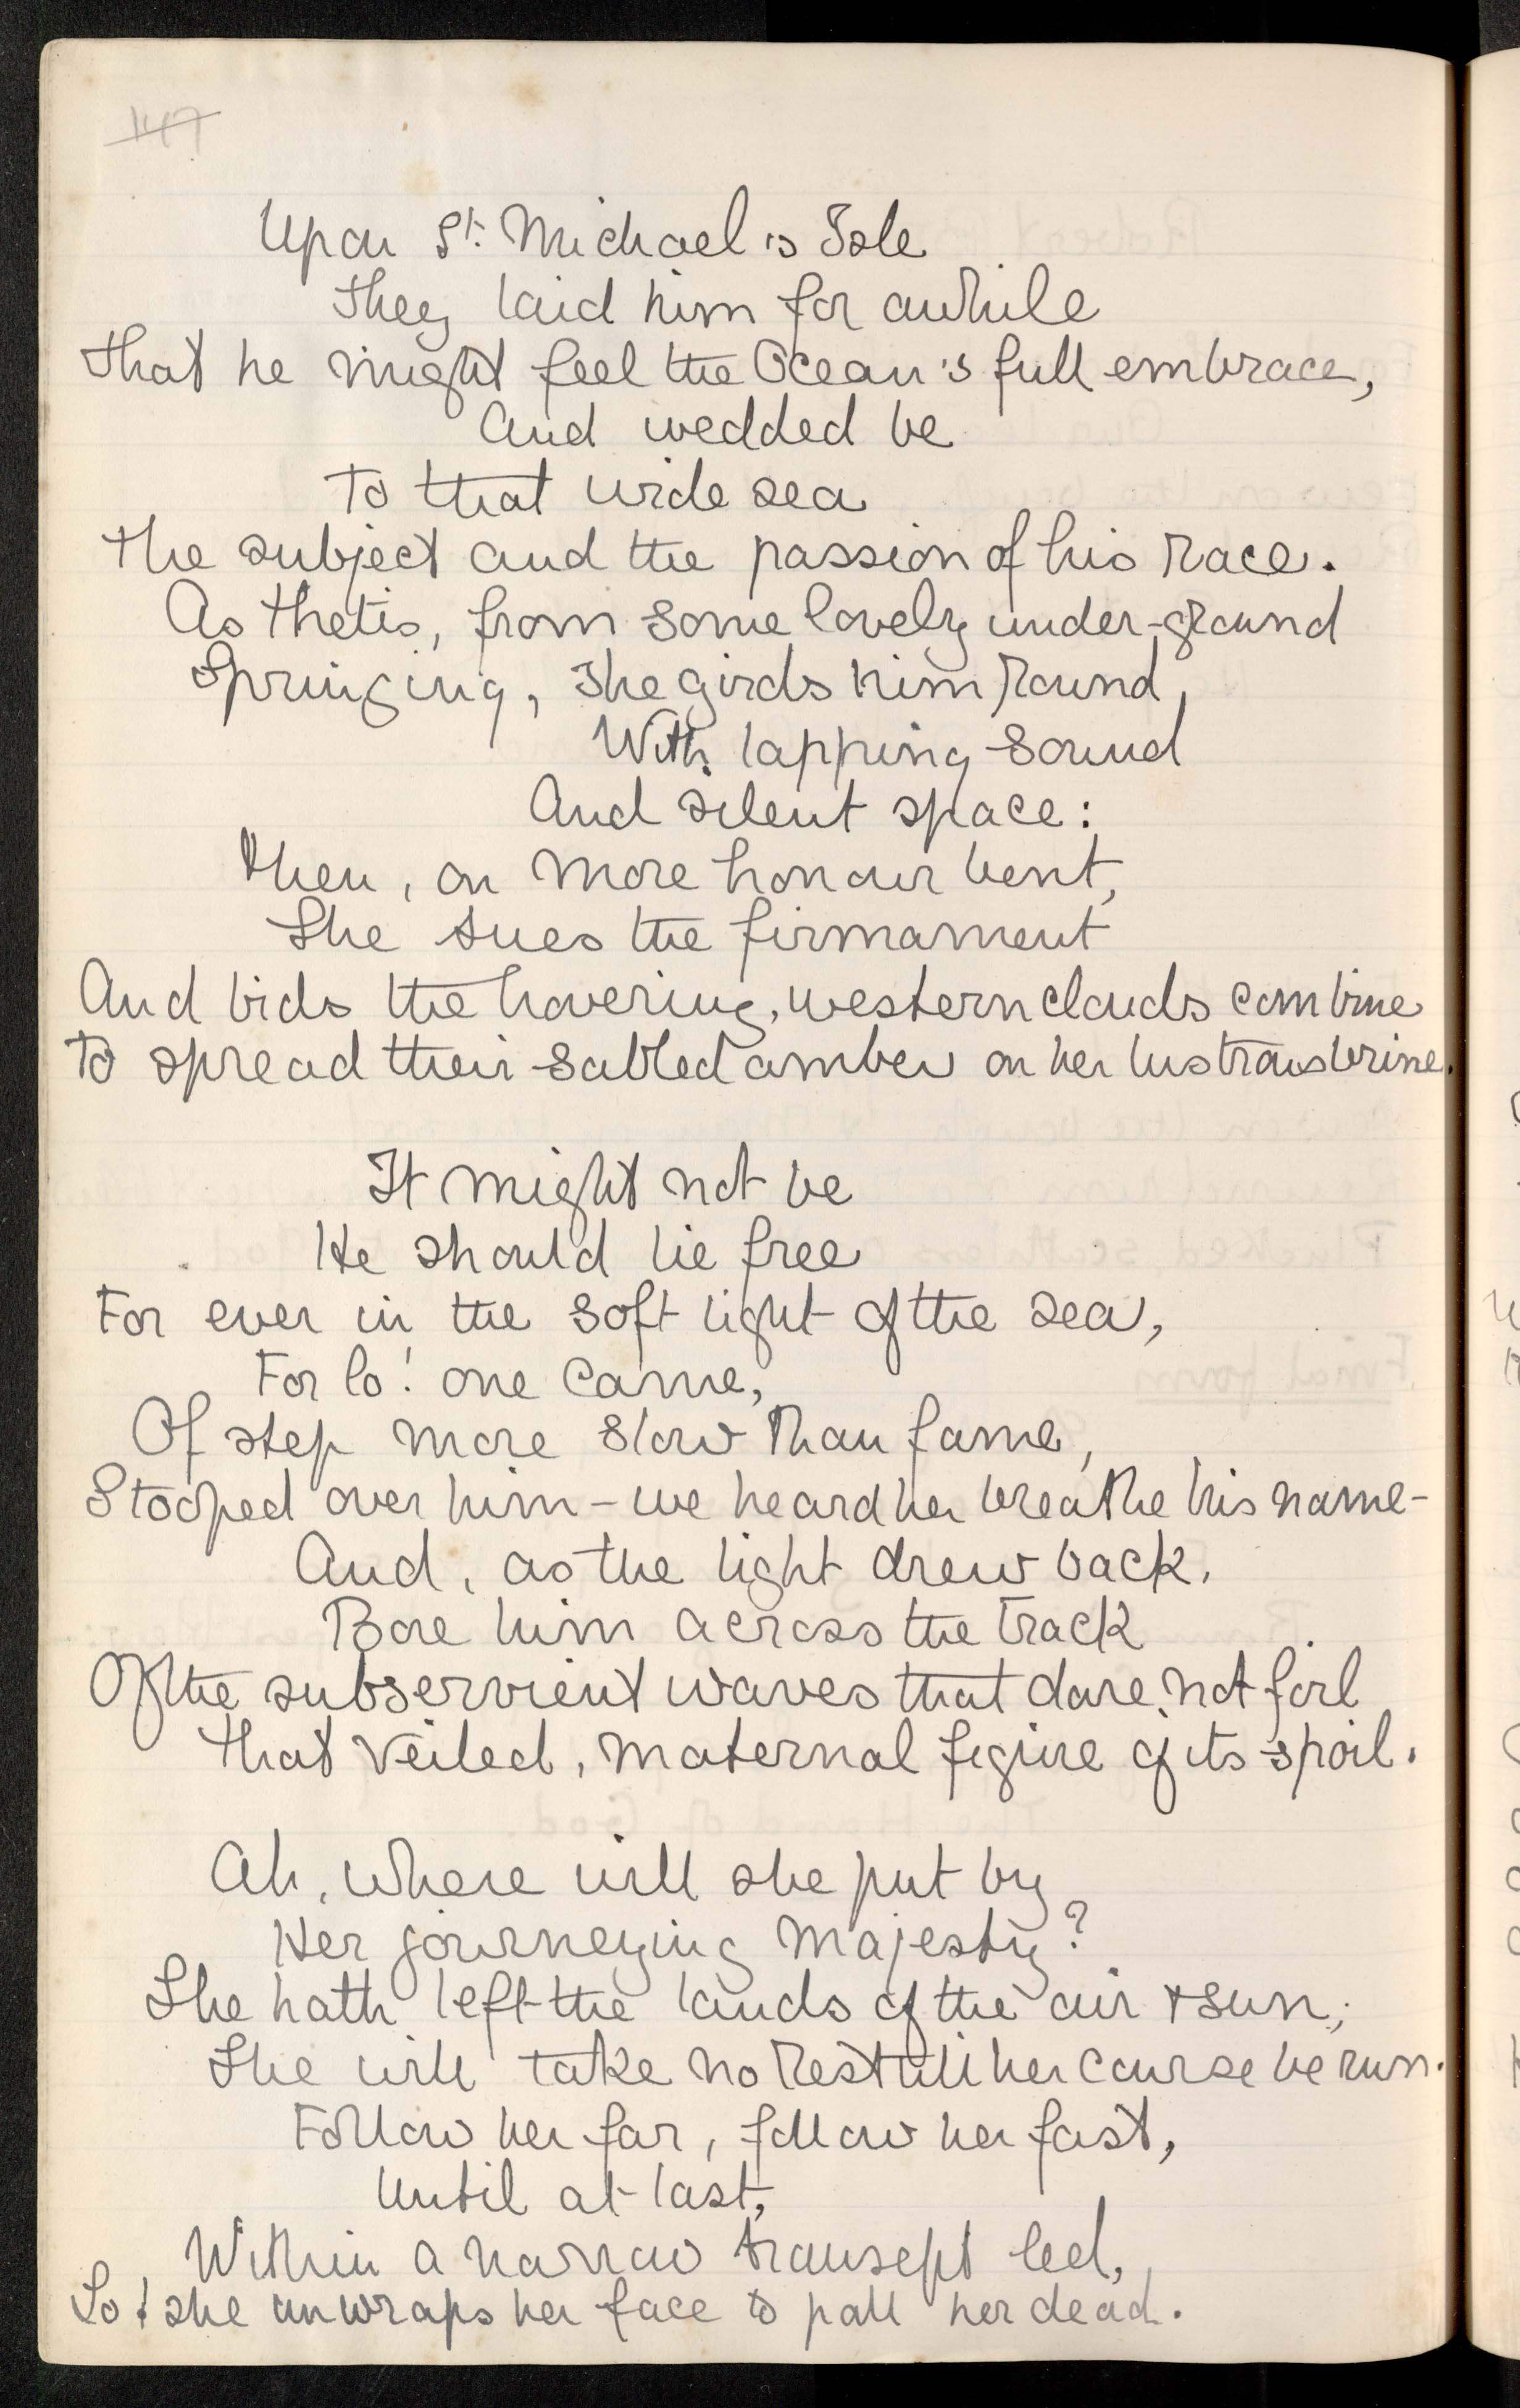 147
Upon St. Michael's Isle
They laid him for awhile
That he might feel the Ocean's full embrace,
And wedded be
To that wide sea
The subject and the passion of his race.
As Thetis, from some lovely under-ground
Springing, she girds him round,
With lapping sound
And silent space:
Then, on more honour bent,
She sues the firmament
And bids the hovering, western clouds combine
To spread their sabled amber on her lustrous brine.
It might not be
He should lie free
For ever in the soft light of the sea,
For lo! one came,
Of step more slow than fame,
Stooped over him - we heard her breathe his name -
And, as the light drew back,
Bore him across the track
Of the subservient waves that dare not foil
That veiled, maternal figure of its spoil.
Ah, where will she put by
Her journeying majesty?
She hath left the lands of the air & sun;
She will take no rest till her course be run.
Follow her far, follow her fast,
Until at last,
Within a narrow transept led,
Lo! she unwraps her face to pall her dead.